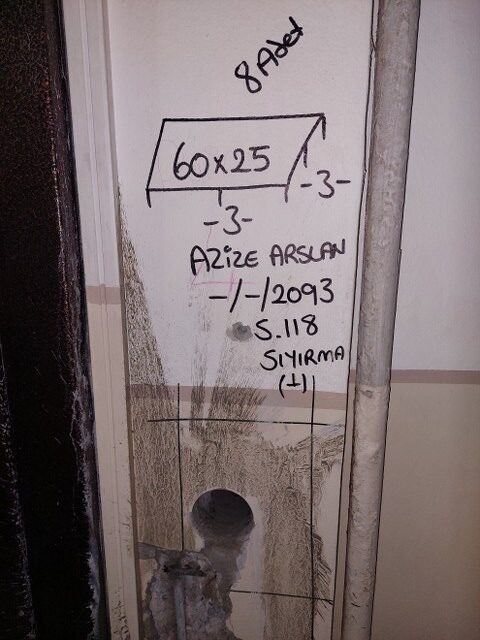 8 Adet
60x25
-3-
-3-
AZiZE ARSLAN
-/-/2093
S.118
SIYIRMA
(⊥)